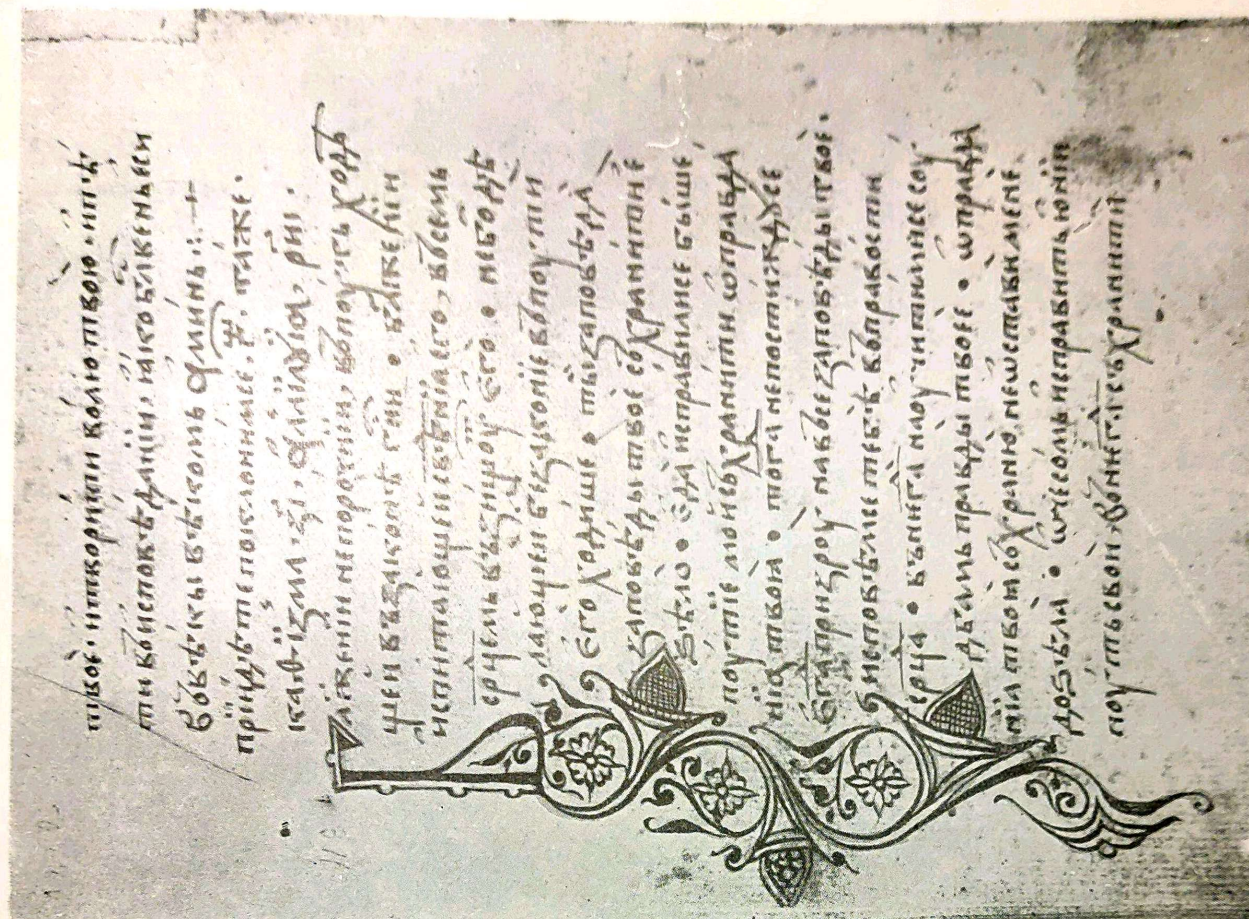 твое· и творити волю твою· и пѣ
ти во исповѣданїи, ꙗко блаженьеси
вовѣкы вѣкомь аминь:·+
прїидѣте поклонимсе, г҃· таже·
каѳизма· з҃і· алилꙋїа, р҃иі·
лажени непорочнїи, впоуть ходѧ
щеи взаконѣ гн҃и · блажени
испитающеи свѣⷣнїа его, всѣмь
ср҃цемь взищоуⷮ его · небо дѣ
лающеи безаконїе впоути
его ходише · тыи заповѣда
заповѣды твое сохранити
ѕѣло · еда исправилисе быше
поутїе мои схранити ѡправда
нїа твоа · тогⷣа непостиждусе
егⷣа призроу навсее заповѣды твое·
исповѣмсе тебѣ вправости
ср҃ца · вънегⷣа наоучитимисе соу
дбамь правды твоее · ѡправда
нїа твоа сохраню, не ѡстави мене
до ѕѣла · ѡчесомь исправить юнїи
поуть свои, внегⷣа схранити